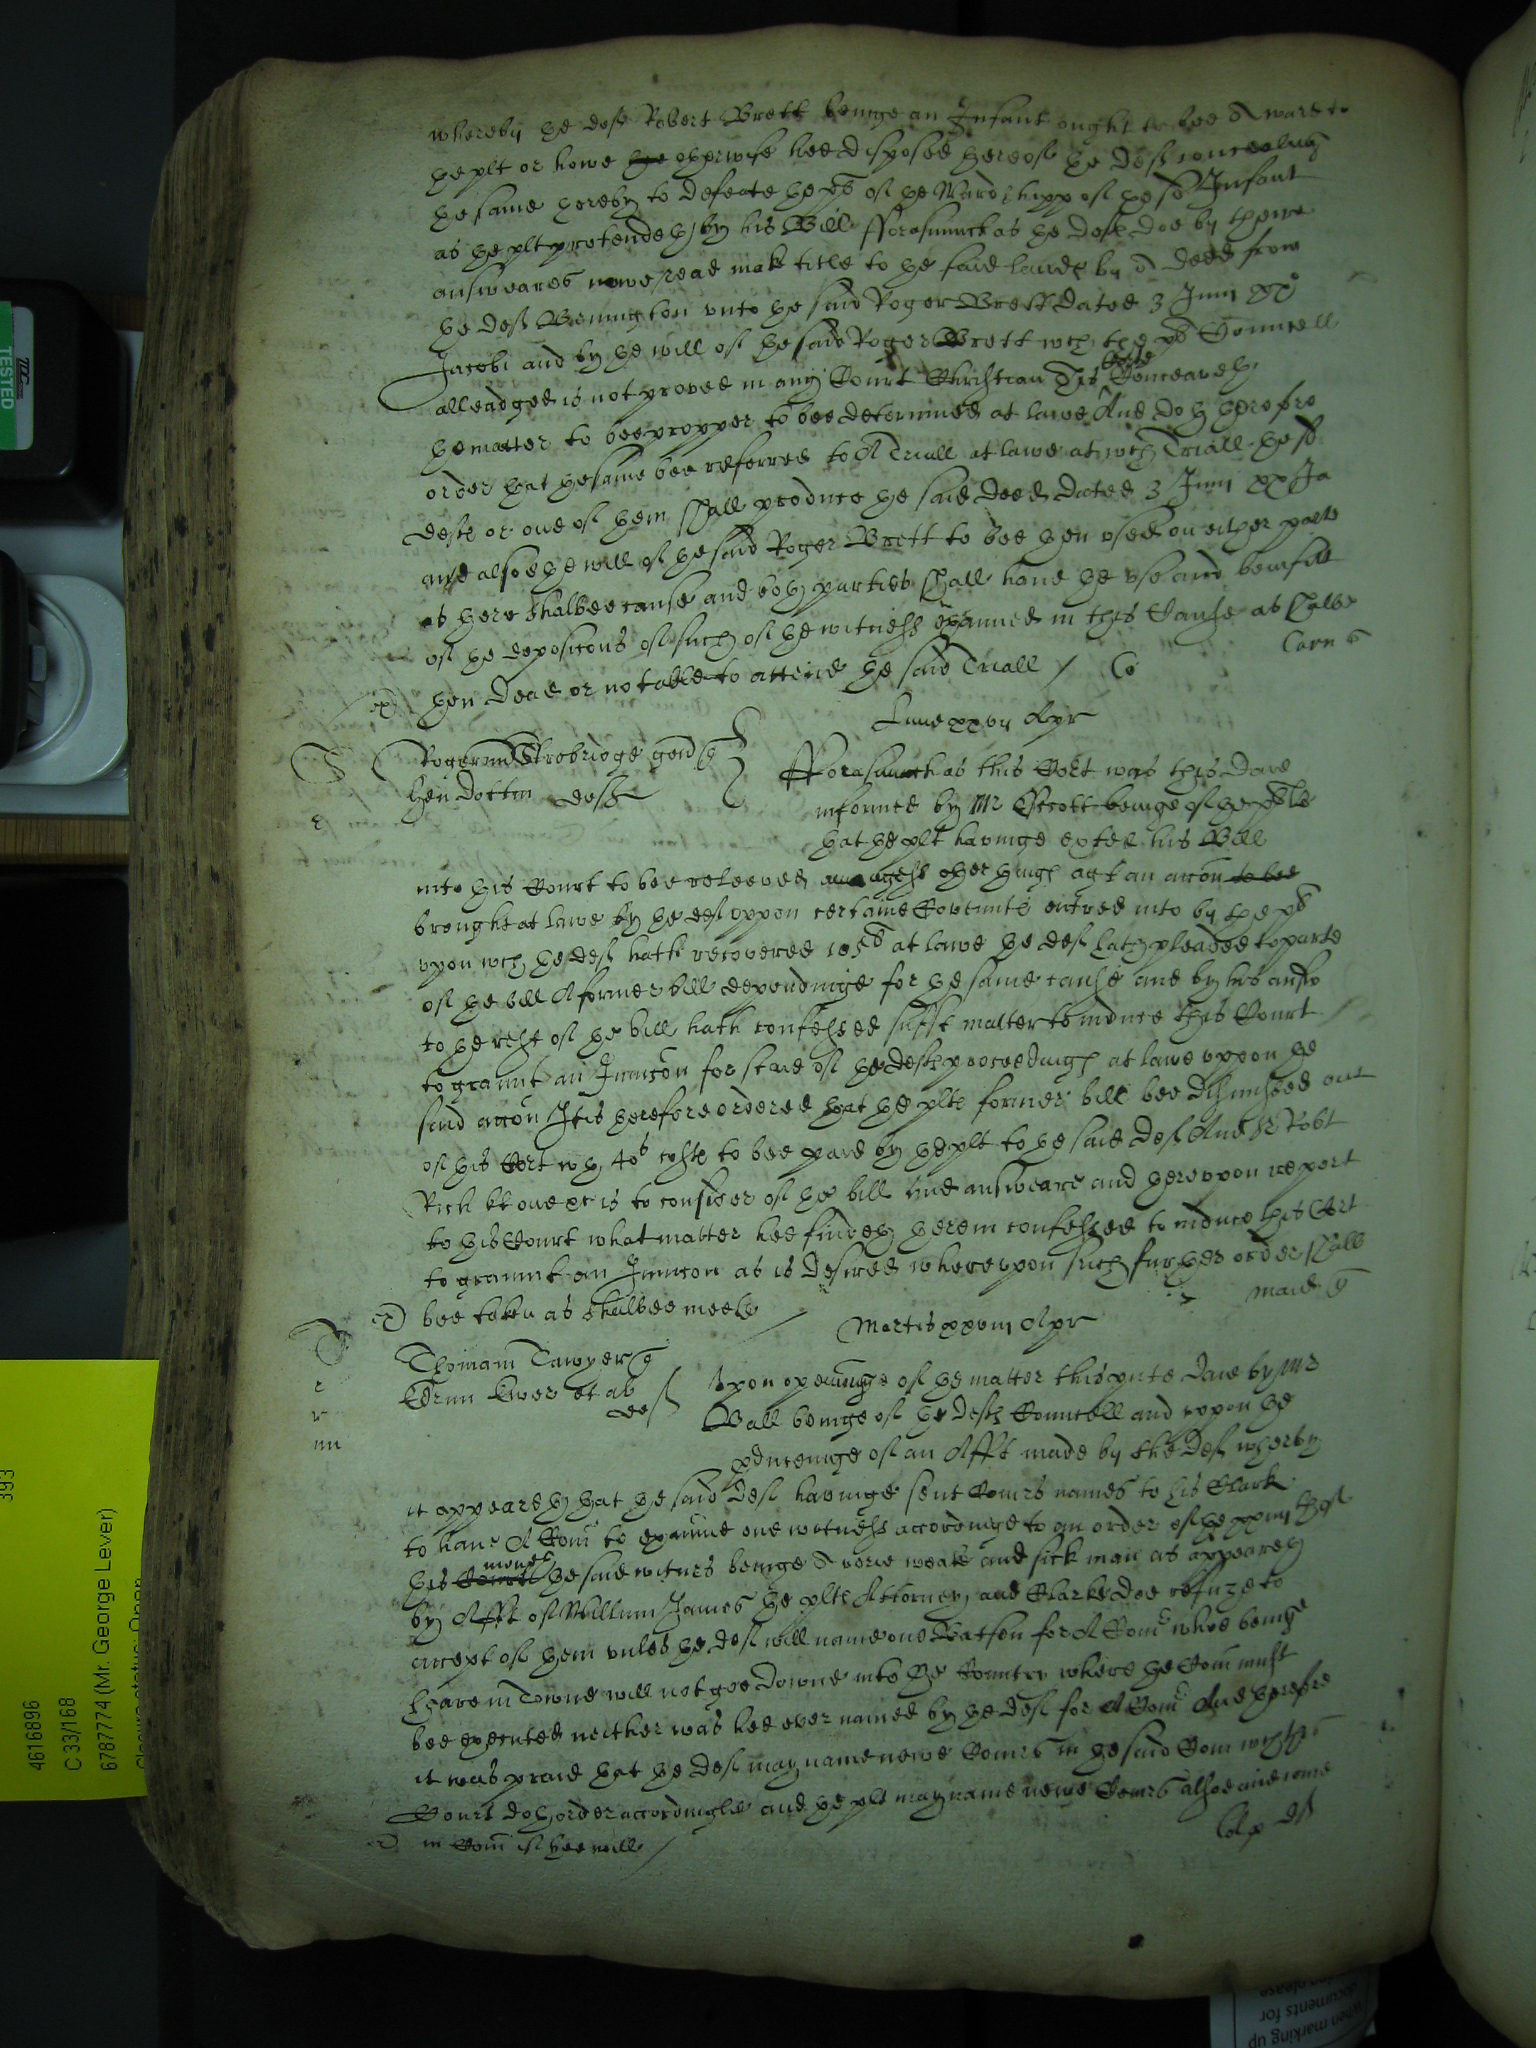 whereby the deft Robert Brett beinge an Infant ought to bee a ward to
the plt or howe the otherwise hee disposed thereof the deft concealing
the same thereby to defeate the plt of the Wardshipp of the sd Infant
as the plt pretendeth by his Bill Fforasmuch as the deftes doe by theire
answeares nowe read make title to the said lands by a deed from
the deft Bennington unto the said Roger Brett dated 3 Junij xx
Jacobi and by the will of the said Roger Brett wch the plts Councell
alleadged is not proved in any Court Christian This Court Conceaveth
the matter to bee propper to bee determined at lawe And doth therefore
order that the same bee referred to A Triall at lawe at wch Triall the sd
deftes or one of them shall produce the said deed dated 3 Junij xx Ja
and alsoe the will of the said Roger Brett to bee then used on either parte
as there shalbee cause and both parties shall have the use and benefitt
of the deposicons of such of the witness exãmined in this Cause as shalbe
then dead or not able to attend the said Triall /
Lune xxvij Apr
Roger Strobridge gen
Hen Dottin deft
Fforasmuch as this Cort was this daie
informed by Mr Escott beinge of the plts
that the plt havinge exhibited his Bill
into this Court to bee releeved amongest other things agt an accon to bee
brought at lawe by the deft uppon certaine Covennts entred into by the plt
upon wch the deft hath recovered at lawe the deft hath pleaded to parte
of the bill A former bill dependinge for the same cause and by his answ
to the rest of the bill hath confessed suffit matter to induce this Court
to graunt an Inuncon for staie of the deftes proceedings at lawe uppon the
said accon It is therefore ordered that the plts former bill bee dismissed out
of this Cort wth 40s costs to bee paid by the plt to the said deft And Sr Robt
Rich kt one etc is to consider of the bill and answeare and thereuppon report
to this Court what matter hee findeth therein confessed to induce this Cort
to graunt an Inuncon as is desired whereuppon such further order shall
bee taken as shalbee meete
Martis xxviij Apr
Thomam Sawyer
deft
Upon openinge of the matter this pnte daie by Mr
Ball beinge of the deftes Councell and uppon the
pducinge of an Afft made by the deft wherby
it appeareth that the said deft havinge sent Comrs names to his Clark
to have A Com to exãmine one witness accordinge to an order of the xxiijth of
this Court moneth the said witness beinge a verie weake and sick man as appeareth
by Afft of William James the plts Attorney and Clarke doe refuze to
accept of them unles the deft will name one Watson for A Comr whoe beinge
heare in Towne will not goe downe into the Country where the Com must
bee executed neither was hee ever named by the deft for A Comr And therefore
it was praid that the deft may name newe Comrs in the said Com wch this
Court doth order accordinglie and the plt may name newe Comrs alsoe and ioyne
in Com if hee will /
393
4616896
C 33/168
6787774 (Mr. George Lever)
Closure status: Open
TESTED
When marking up
documents for
please